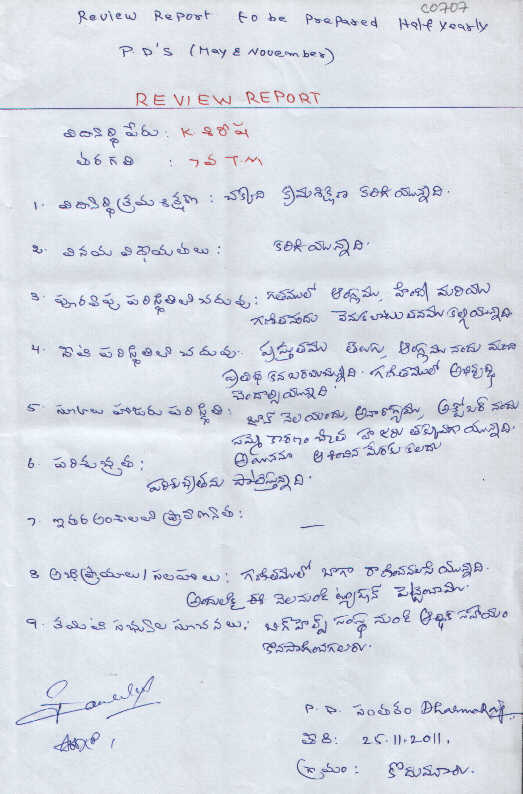 C0707
Review Report to be Prepared Half Yearly
P.D'S (May & November)
REVIEW REPORT
విద్యార్థి పేరు : K. శిరీష
తరగతి : 7వ T.M
1. విద్యార్థి క్రమశిక్షణ : చక్కని క్రమశిక్షణ కలిగి యున్నది.
2. వినయ విధేయతలు : కలిగి యున్నది.
3. పూర్వపు పరిస్థితిలో చదువు : గతములో ఆంగ్లము, హిందీ మరియు
గణితమందు వెనుకబాటుతనము కల్గియున్నది
4. నేటి పరిస్థితిలో చదువు : ప్రస్తుతము తెలుగు, ఆంగ్లము నందు మంచి
ప్రతిభ కనబరచుచున్నది. గణితములో అభివృద్ధి
చెందాల్సియున్నది.
5. స్కూలు హాజరు పరిస్థితి : జూన్ నెలయందు, అనారోగ్యము, అక్టోబర్ నందు
సమ్మె కారణం చేత హాజరు తక్కువగా యున్నది.
అయినను ఆశించిన మేరకు కలదు
6. పరిశుభ్రత :
పరిశుభ్రతను పాటిస్తున్నది.
7. ఇతర అంశాలలో ప్రావీణ్యత : —
8 అభిప్రాయాలు/ సలహాలు : గణితములో బాగా రాణించవలసి యున్నది.
అందులకై ఈ నెల నుండి ట్యూషన్ పెట్టించాము.
9. కమిటి సభ్యుల సూచనలు : బిగ్ హెల్ప్ సంస్థ నుండి ఆర్థిక సహాయం
కొనసాగించగలరు.
P.D. సంతకం Dharmaraj
తేది : 25.11.2011,
గ్రామం : కొదుమూరు.